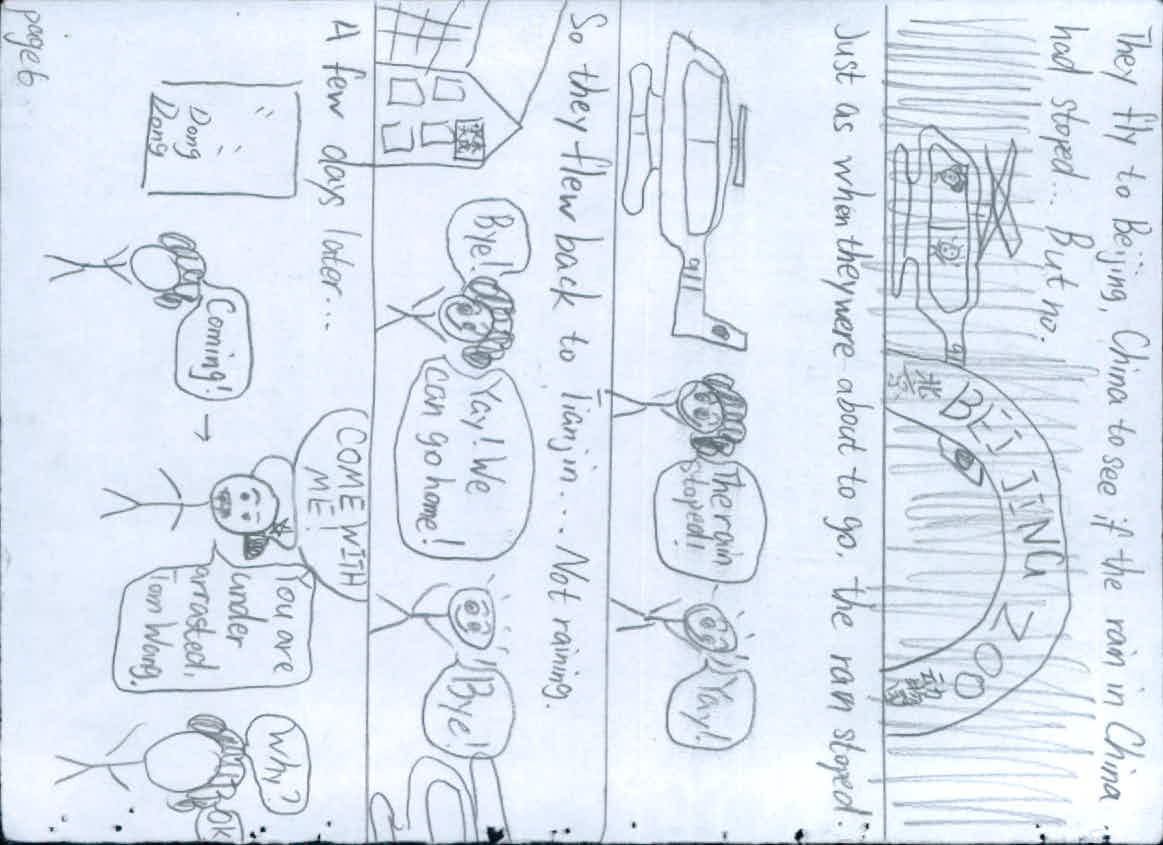 They fly to Beijing, China to see if the rain in China
had stoped... But no.
BEIJING ZOO
北京
动物园
911
Just as when they were about to go, the rain stoped.
911
The rain
stoped!
Yay!
So they flew back to Tianjin... Not raining.
Bye!
Yay! We
can go home!
Bye!
A few days later...
Dong
Dong
Coming!
→
COME WITH
ME!
You are
under
arrasted,
Tom Wang.
Why?
OK
page 6